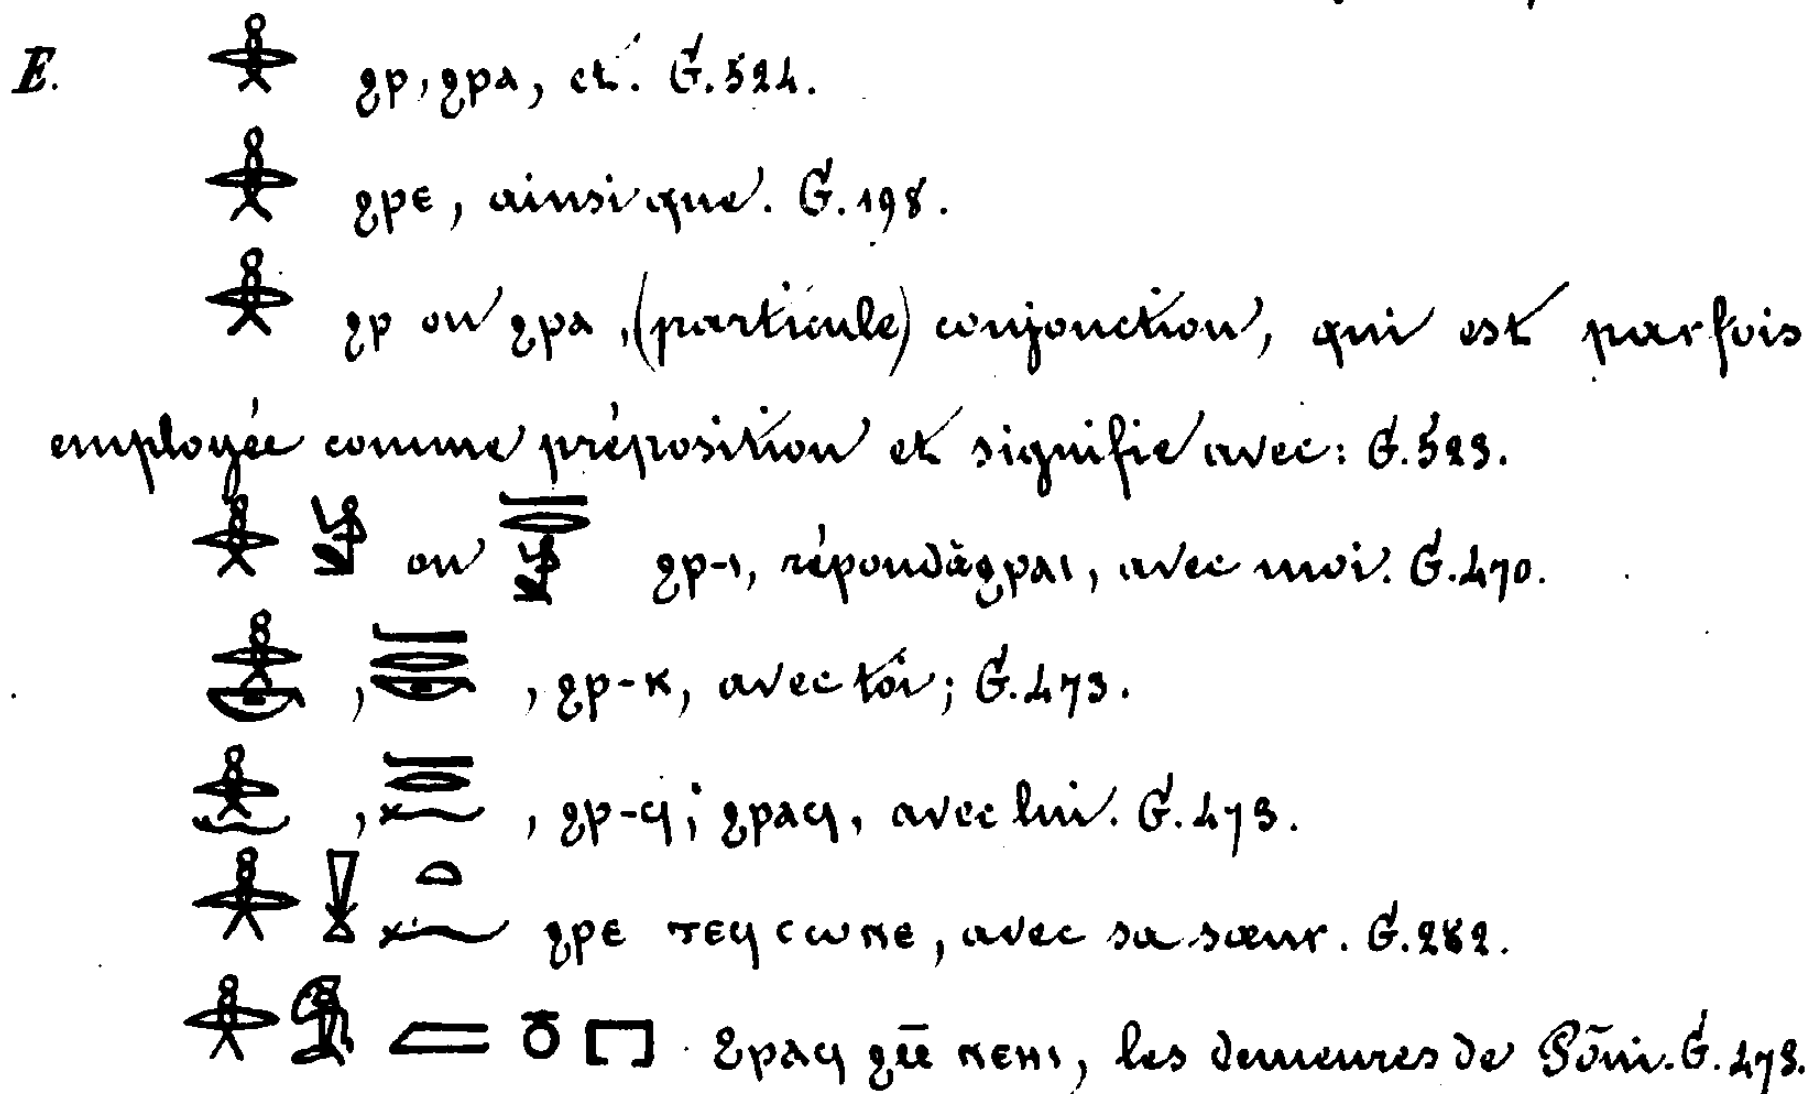 E. ϩⲣ, ϩⲣⲁ, et. G. 524.
ϩⲣⲉ, ainsi que. G. 198.
ϩⲣ ou ϩⲣⲁ, (particule) conjonction, qui est parfois
employée comme préposition et signifie avec: G. 523.
ou ϩⲣ-ⲓ, répond à ϩⲣⲁⲓ, avec moi. G. 470.
, , ϩⲣ-ⲕ, avec toi; G. 473.
, , ϩⲣ-ϥ; ϩⲣⲁϥ, avec lui. G. 473.
ϩⲣⲉ ⲧⲉϥⲥⲱⲛⲉ, avec sa sœur. G. 282.
ϩⲣⲁϥ ⲛⲉⲏⲓ, les demeures de G. 473.